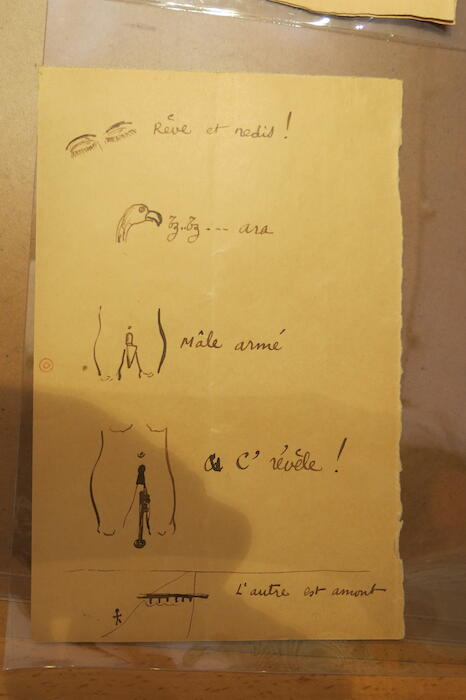 Rêve et redis !
ara
Mâle armé
C' révèle !
L'autre est amont